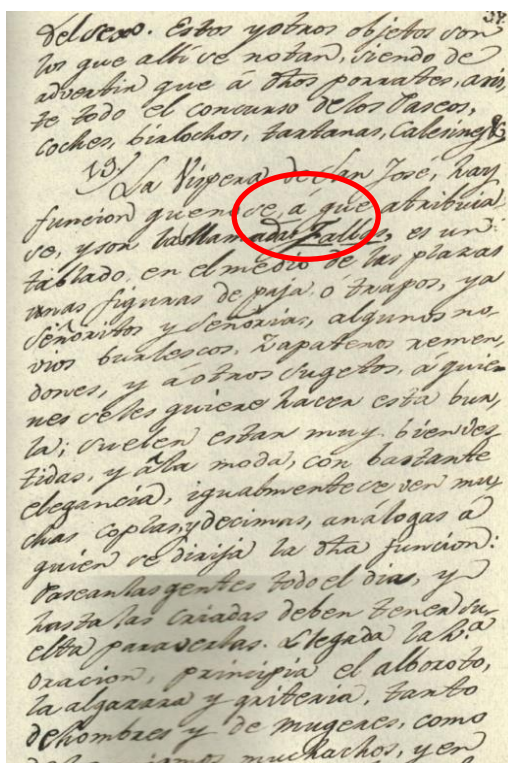 37.
del sexo. Estos yotros objetos son
los que alli se notan, siendo de
advertir que á dhos porrates, asis,
te todo el concurso delos Paseos,
coches, birlochos, tartanas, Calesines &.
19/ La Vispera de San Jose, hay
funcion que no se, á que atribuir
se, y son las llamadas Fallas, es un
tablado, en el medio de las plazas
unas figuras de paja, o trapos, ya
Señoritos y Señorias, algunos no,
vios burlescos, Zapateros remen,
dones, y á otros sugetos, á quie
nes seles quiere hacer esta bur,
la; suelen estar muy bienves
tidas, y á la moda, con bastante
elegancia, igualmente se ven mu,
chas coplas y decimas, análogas á
quien se dirija la dha funcion:
Paseanlas gentes todo el dia, y
hasta las criadas deben tener su
elta para verlas. Llegada la h.ª
oracion, principia el alboroto,
la algazara y griteria, tanto
dehombres y de mugeres, como
muchachos, y en